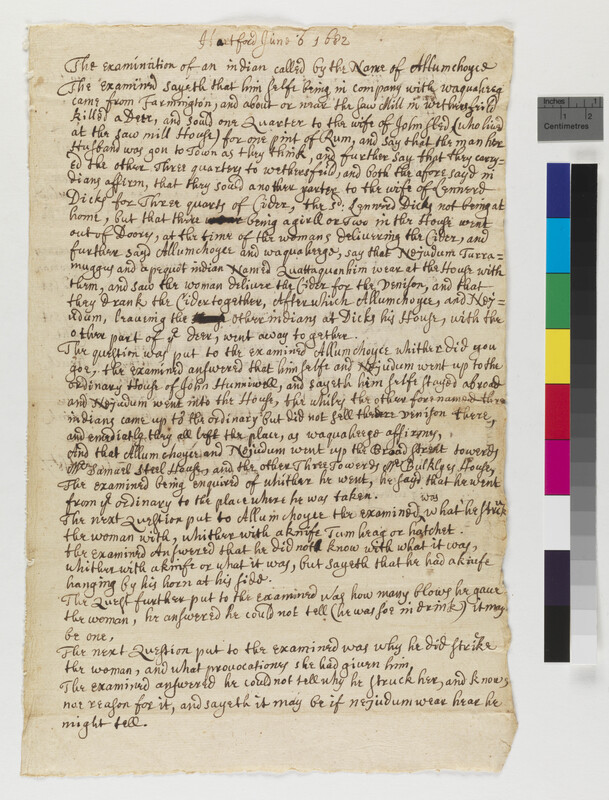 Hartford June 6 1682
The examination of an indian called by the Name of Allumchoyce
The examined sayeth that him selfe being in company with waquaheag
came from Farmington, and about or near the saw Mill in wethersfeild
killed a Deer, and sould one Quarter to the wife of John (who live
at the saw mill House) for one pint of Rum, and say that the man her
Husband was gon to Town as they think, and further say that they cary-
ed the other Three quarters to wethersfeild, and both the afore sayd in
dians affirm, that they sould another to the wife of Lennerd
Dicks for Three quarts of Cider, the sd. Lennerd Dicks not being at
home, but that there being a girll or Two in the House went
out of Doors, at the time of the womans delivering the Cider, and
further said Allumchoyce and waquaheage, say that Nejudum Turra-
muggus and a pequot indian Named Quattaquenhim wear at the House with
them, and saw the woman deliver the Cider for the venison, and that
they drank the Cider together, After which Allumchoyce, and Nej-
udum, leaveing the other indians at Dicks his House, with the
other part of ye deer, went away to gether.
The question was put to the examined Allumchoyce whither did you
goe, the examined answered that him selfe and Nejudum went up to the
ordinary House of John Hunniwell, and sayeth him selfe stayed abroad
and Nejudum went into the House, the whiles the other fore named three
indians came up to the ordinary but did not sell there venison there,
and emediatly they all left the place, as waquaheege affirms,
And that Allumchoyce and Nejudum went up the Broad street towards
Mr Samuel Steel House, and the other Three Towards Mr Bulklys House,
The examined being enquired of whither he went, he said that he went
from ye ordinary to the place where he was taken.
The next Question put to Allumchoyce the examined was what he struck
the woman with, whither with a knife Tum heag or hatchet.
the examined Answered that he did not know with what it was,
whither with a knife or what it was, but sayeth that he had a knife
hanging by his horn at his side.
The Quest further put to the examined was how many blows he gave
the woman, he answered he could not tell (he was soe in drink) it may
be one,
The next Question put to the examined was why he did strike
the woman, and what provocationes she had given him,
The examined answered he could not tell why he struck her, and knows
noe reason for it, and sayeth it may be if nejudum wear hear he
might tell.
Inches
1
2
Centimetres